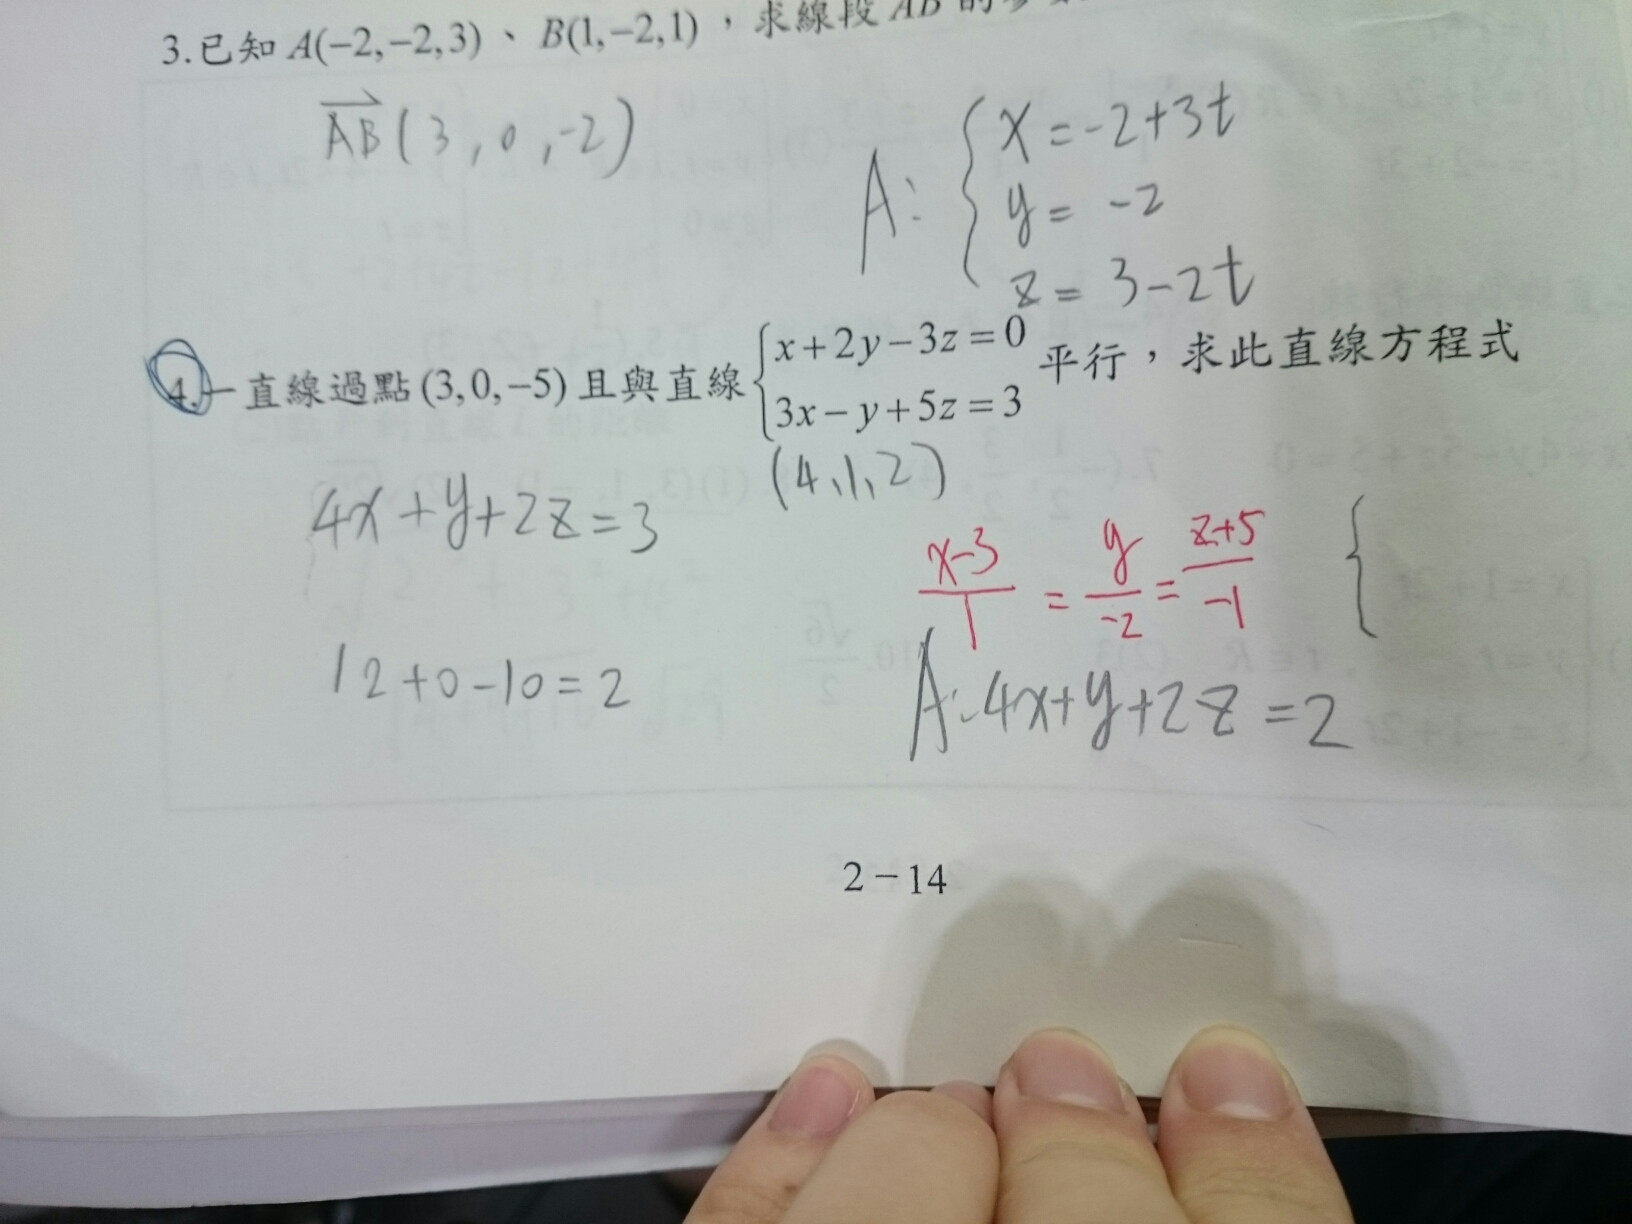 3.已知 A(−2,−2,3)、B(1,−2,1),求線段 AB 的
AB(3,0,-2)
A: { x=-2+3t
y= -2
z= 3-2t
4.一直線過點(3,0,−5)且與直線 { x+2y−3z=0 平行,求此直線方程式
3x−y+5z=3
(4,1,2)
4x+y+2z=3
x-3/1 = y/-2 = z+5/-1 {
12+0-10=2
A:4x+y+2z=2
2−14